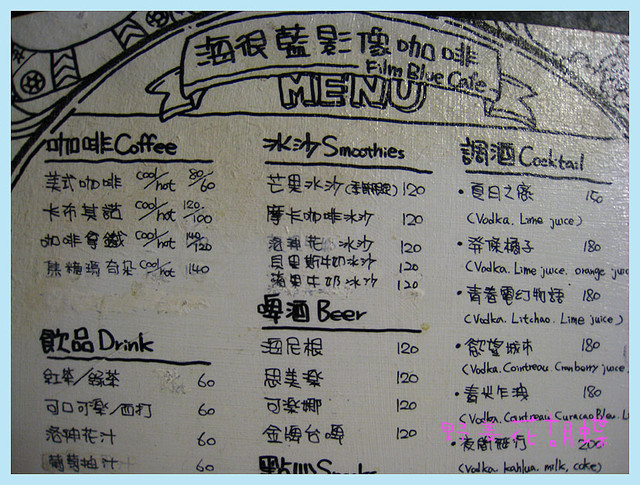 海很藍影像咖啡
Film Blue Cafe
MENU
咖啡 Coffee
美式咖啡 cool/hot 80/60
卡布其諾 cool/hot 120/100
咖啡拿鐵 cool/hot 140/120
焦糖瑪奇朵 cool/hot 140
飲品 Drink
紅茶/綠茶 60
可口可樂/西打 60
洛神花汁 60
葡萄柚汁 60
冰沙 Smoothies
芒果冰沙 120
摩卡咖啡冰沙 120
洛神花冰沙 120
貝里斯牛奶冰沙 120
蘋果牛奶冰沙 120
啤酒 Beer
海尼根 120
思美樂 120
可樂娜 120
金牌台啤 120
點心
調酒 Cocktail
・夏日之戀 150
(Vodka. Lime juice)
橘子 180
(Vodka. Lime juice. orange juic
・青春電幻物語 180
(Vodka. Litchao. Lime juice)
・慾望城市 180
(Vodka. Cointreau. Cranberry juice
180
(Vodka. Cointreau Curacao Bleu L
・夜間 200
(Vodka. kahlua. milk, coke)